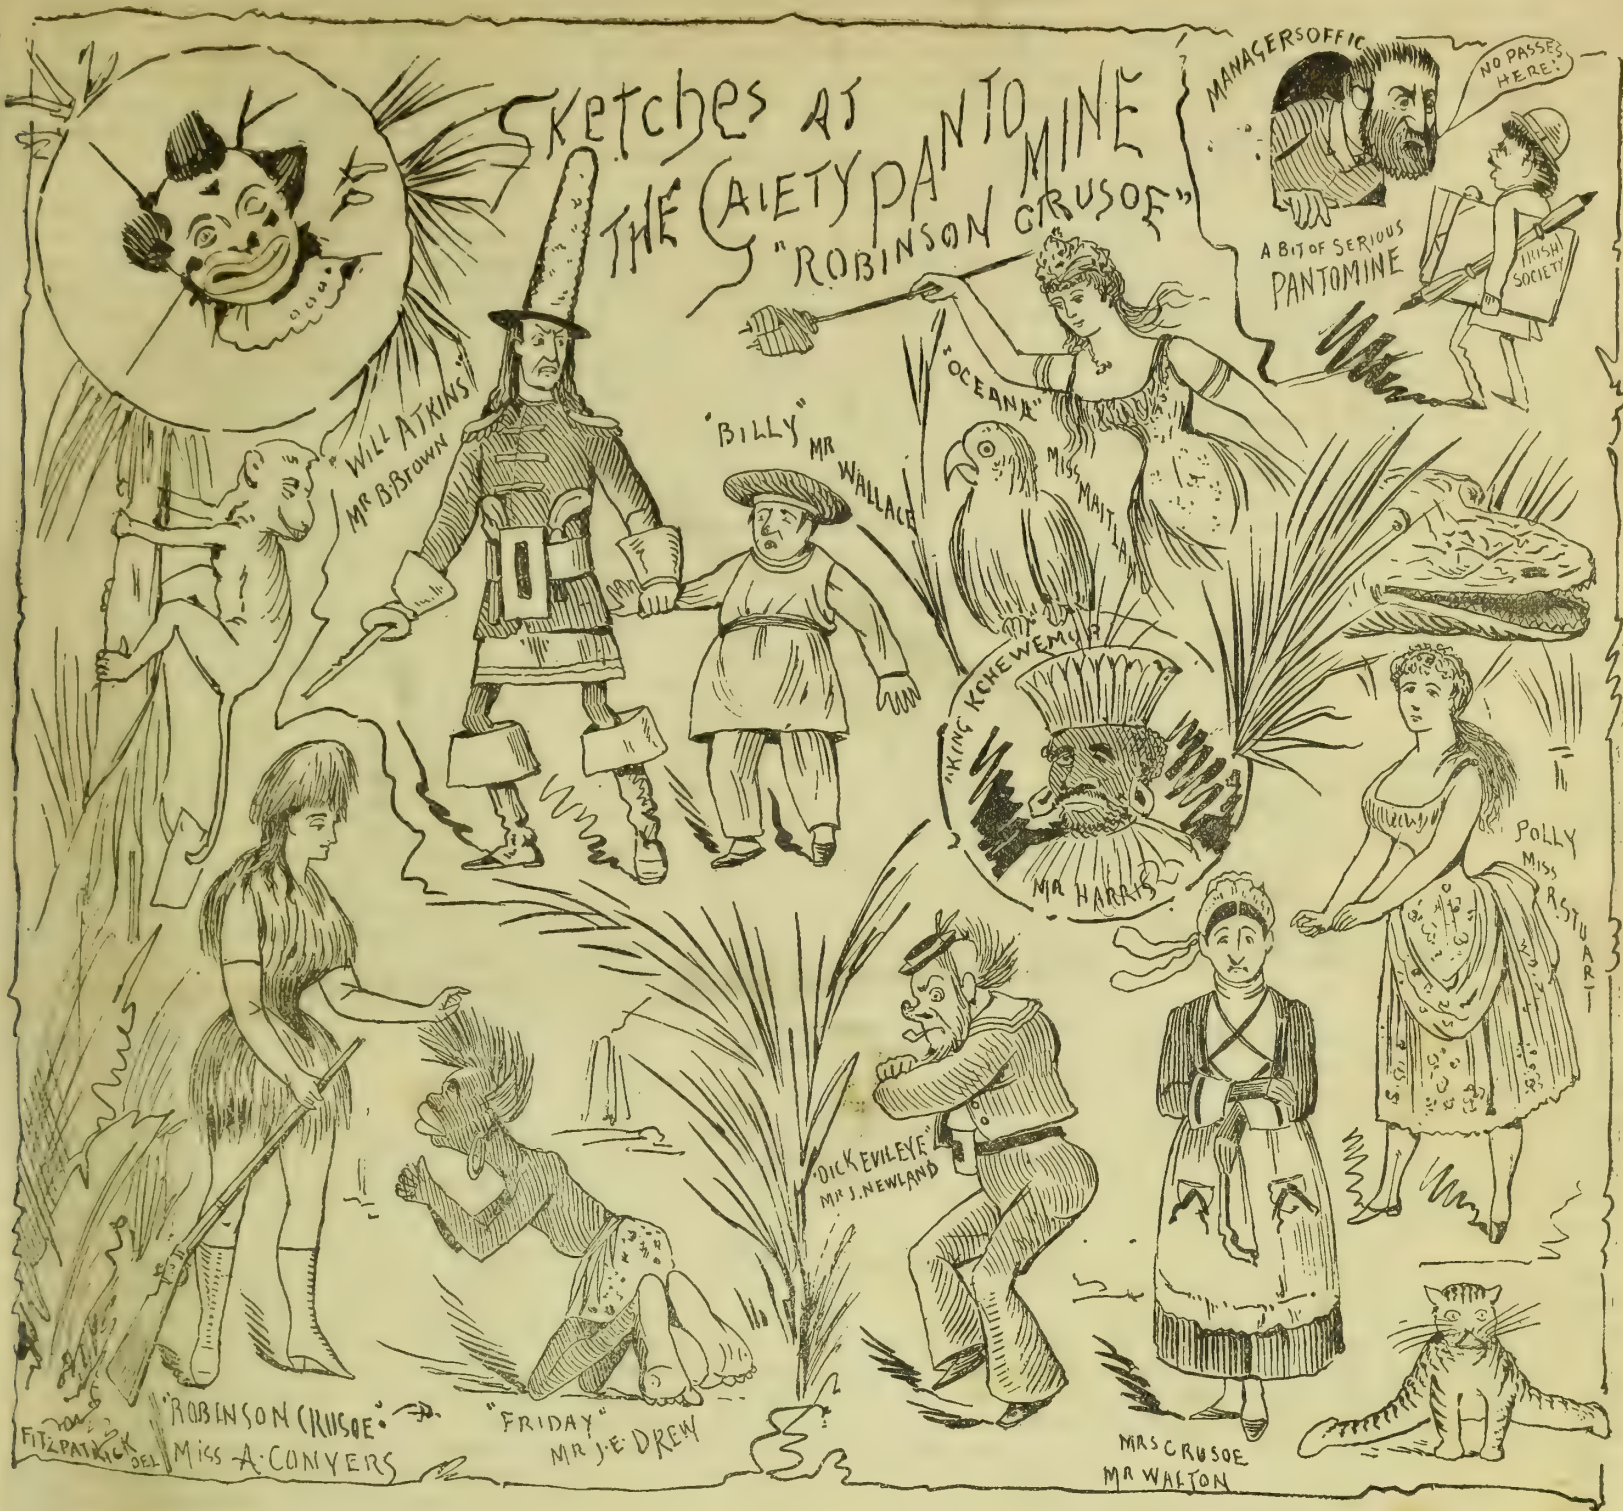 Sketches AT
THE GAIETY PANTOMINE
"ROBINSON CRUSOE"
MANAGERS OFFIC
NO PASSES
HERE!
A BIT OF SERIOUS
PANTOMINE
IRISH
SOCIETY
"WILL ATKINS"
MR B. BROWN
"BILLY" MR
WALLACE
"OCEANA"
MISS MAITLA
"KING KCHEWEMUP
MR HARRIS
POLLY
MISS
R. STUART
"DICK EVILEYE"
MR J. NEWLAND
"ROBINSON CRUSOE"
MISS A. CONYERS
"FRIDAY"
MR J. E. DREW
MRS CRUSOE
MR WALTON
TOM
FITZPATRICK
DEL